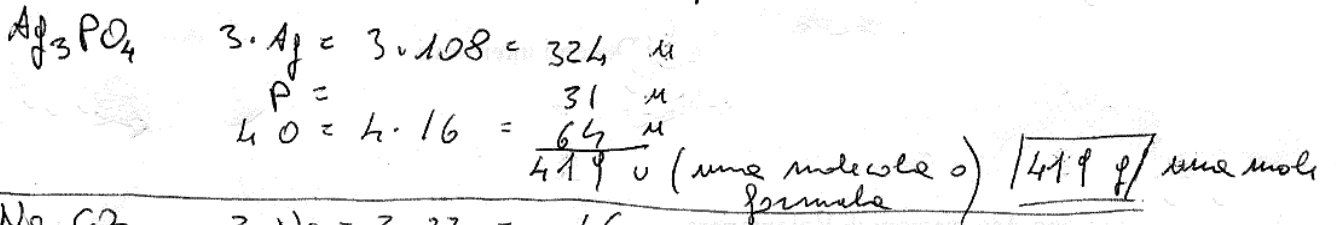 Ag3PO4 3·Ag = 3·108 = 324 u
P = 31 u
4 O = 4·16 = 64 u
419 u (una molecola o formula) 419 g una mole